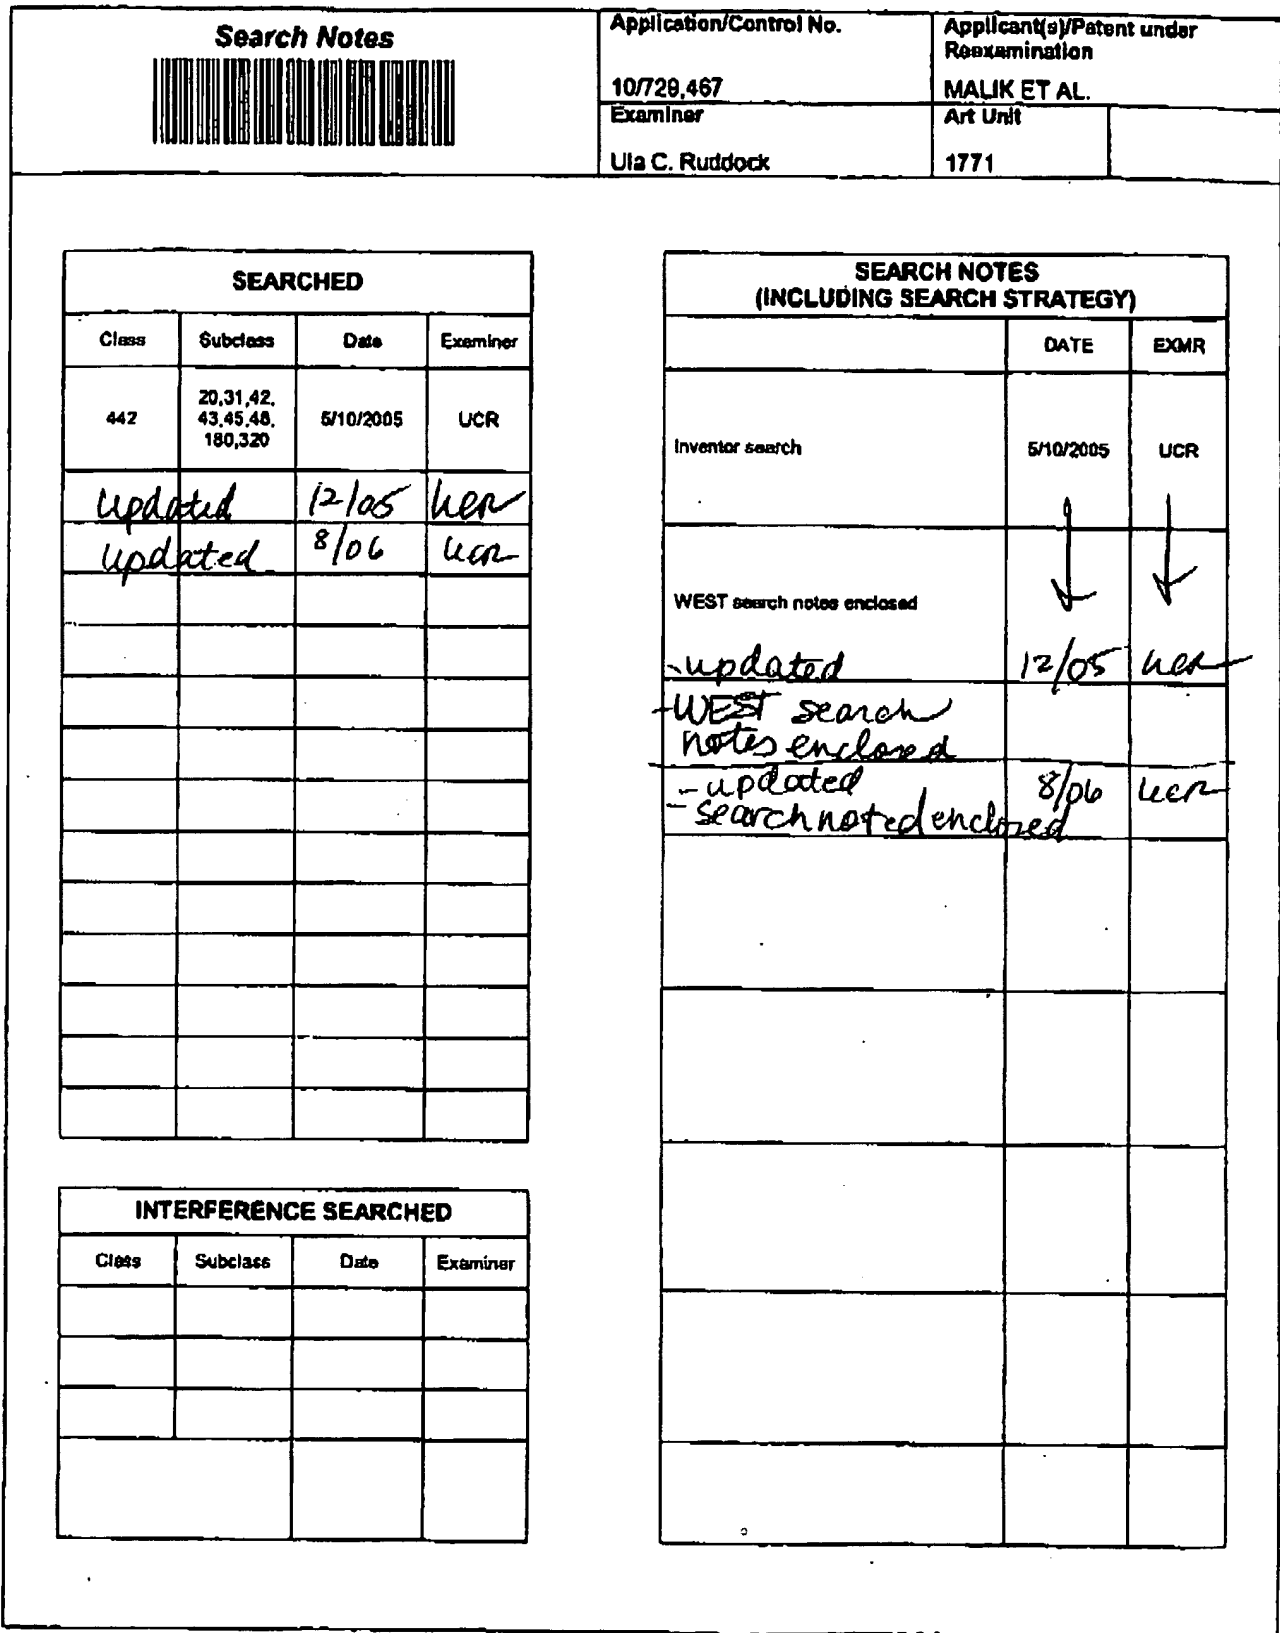 Search Notes
Application/Control No.
10/729,467
Applicant(s)/Patent under
Reexamination
MALIK ET AL.
Examiner
Ula C. Ruddock
Art Unit
1771
SEARCHED
Class Subclass Date Examiner
442
20,31,42,
43,45,48,
180,320
5/10/2005 UCR
updated 12/05 UCR
updated 8/06 UCR
INTERFERENCE SEARCHED
Class Subclass Date Examiner
SEARCH NOTES
(INCLUDING SEARCH STRATEGY)
DATE EXMR
Inventor search 5/10/2005 UCR
WEST search notes enclosed
-updated 12/05 UCR
-WEST search
notes enclosed
-updated 8/06 UCR
-search noted enclosed